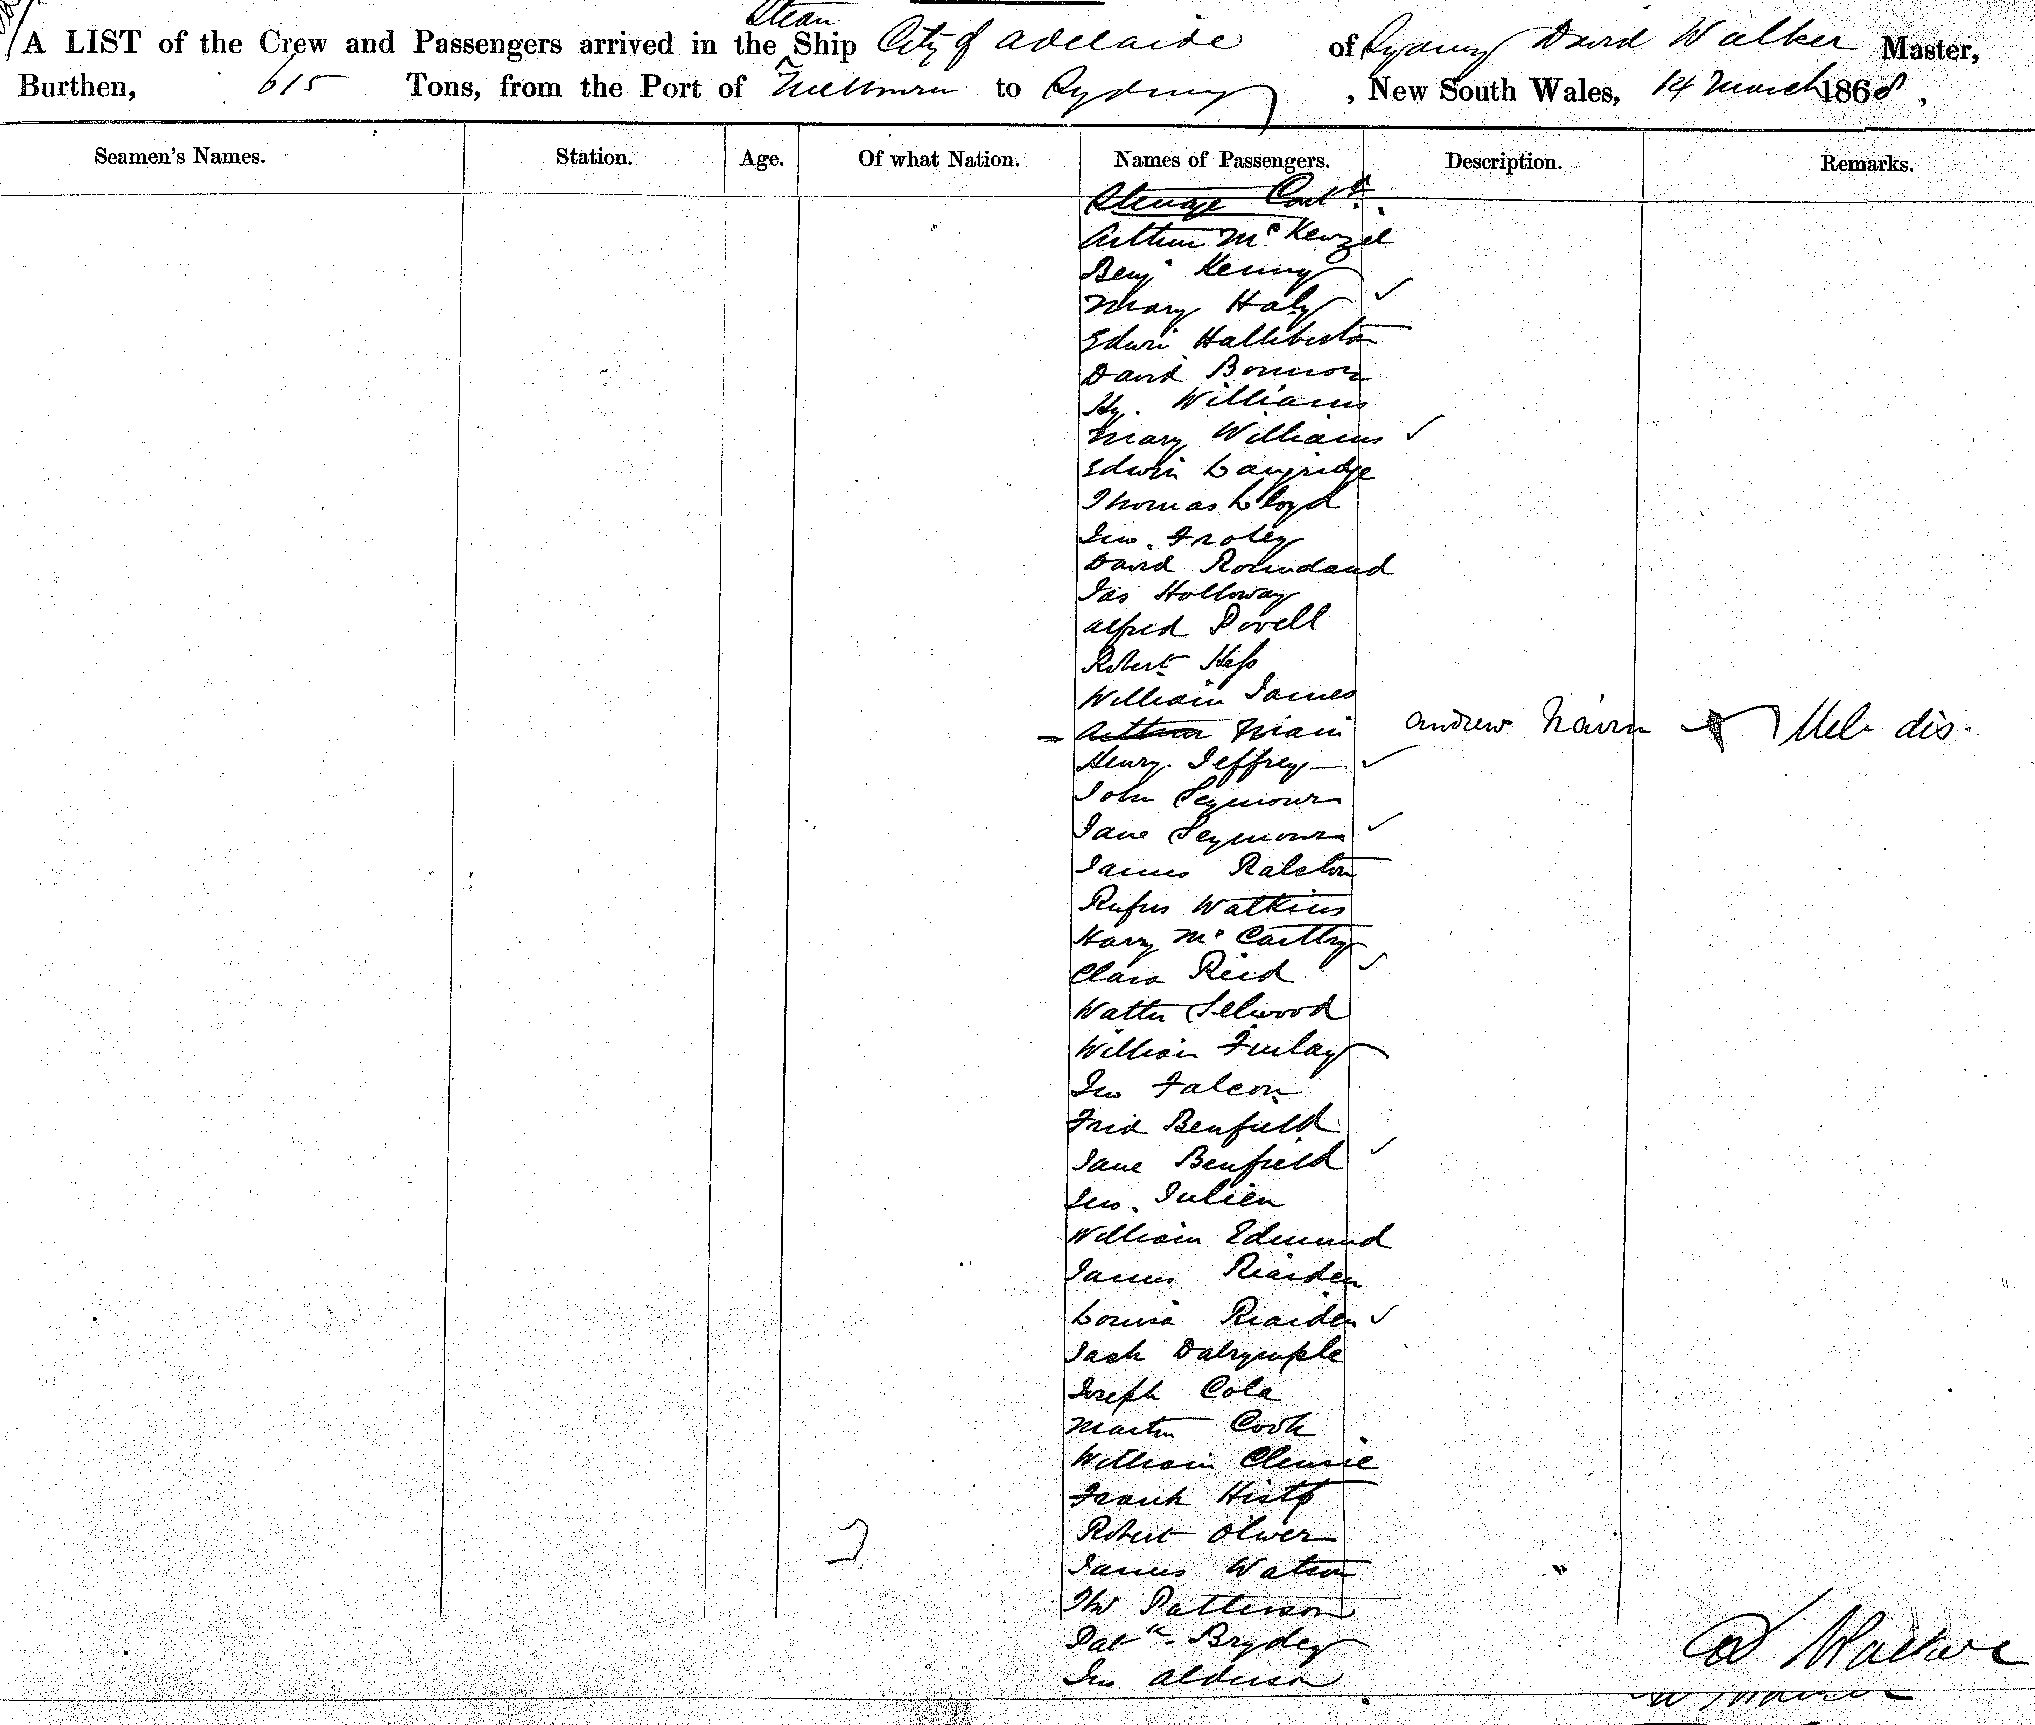 Steam
A LIST of the Crew and Passengers arrived in the Ship City of Adelaide of Sydney David Walker Master,
Burthen, 615 Tons, from the Port of Melbourne to Sydney, New South Wales, 14 March 1868,
Seamen's Names. Station. Age. Of what Nation. Names of Passengers. Description. Remarks.
Steerage Contd.
Arthur McKenzie
Benj Kenny
Mary Haly
Edwin
David
Hy. Williams
Mary Williams
Edwin Langridge
Thomas Lloyd
Jno. Froley
David
Jas Holloway
Alfred Povell
Robert Hess
William James
Arthur Andrew Nairn Mel dis.
Henry Jeffrey
John Seymour
Jane Seymour
James Ralston
Rufus Watkins
Harry McCarthy
Clara Reid
Walter Selwood
William Finlay
Jno Falcon
Fred Benfield
Jane Benfield
Jno. Julien
William Edmund
James Riarden
Louisa Riarden
Jack Dalrymple
Joseph Cola
Martin Cook
William
Frank
Robert Oliver
James Watson
Thos Patterson
Patk. Brydey
Jno Alderson
D Walker